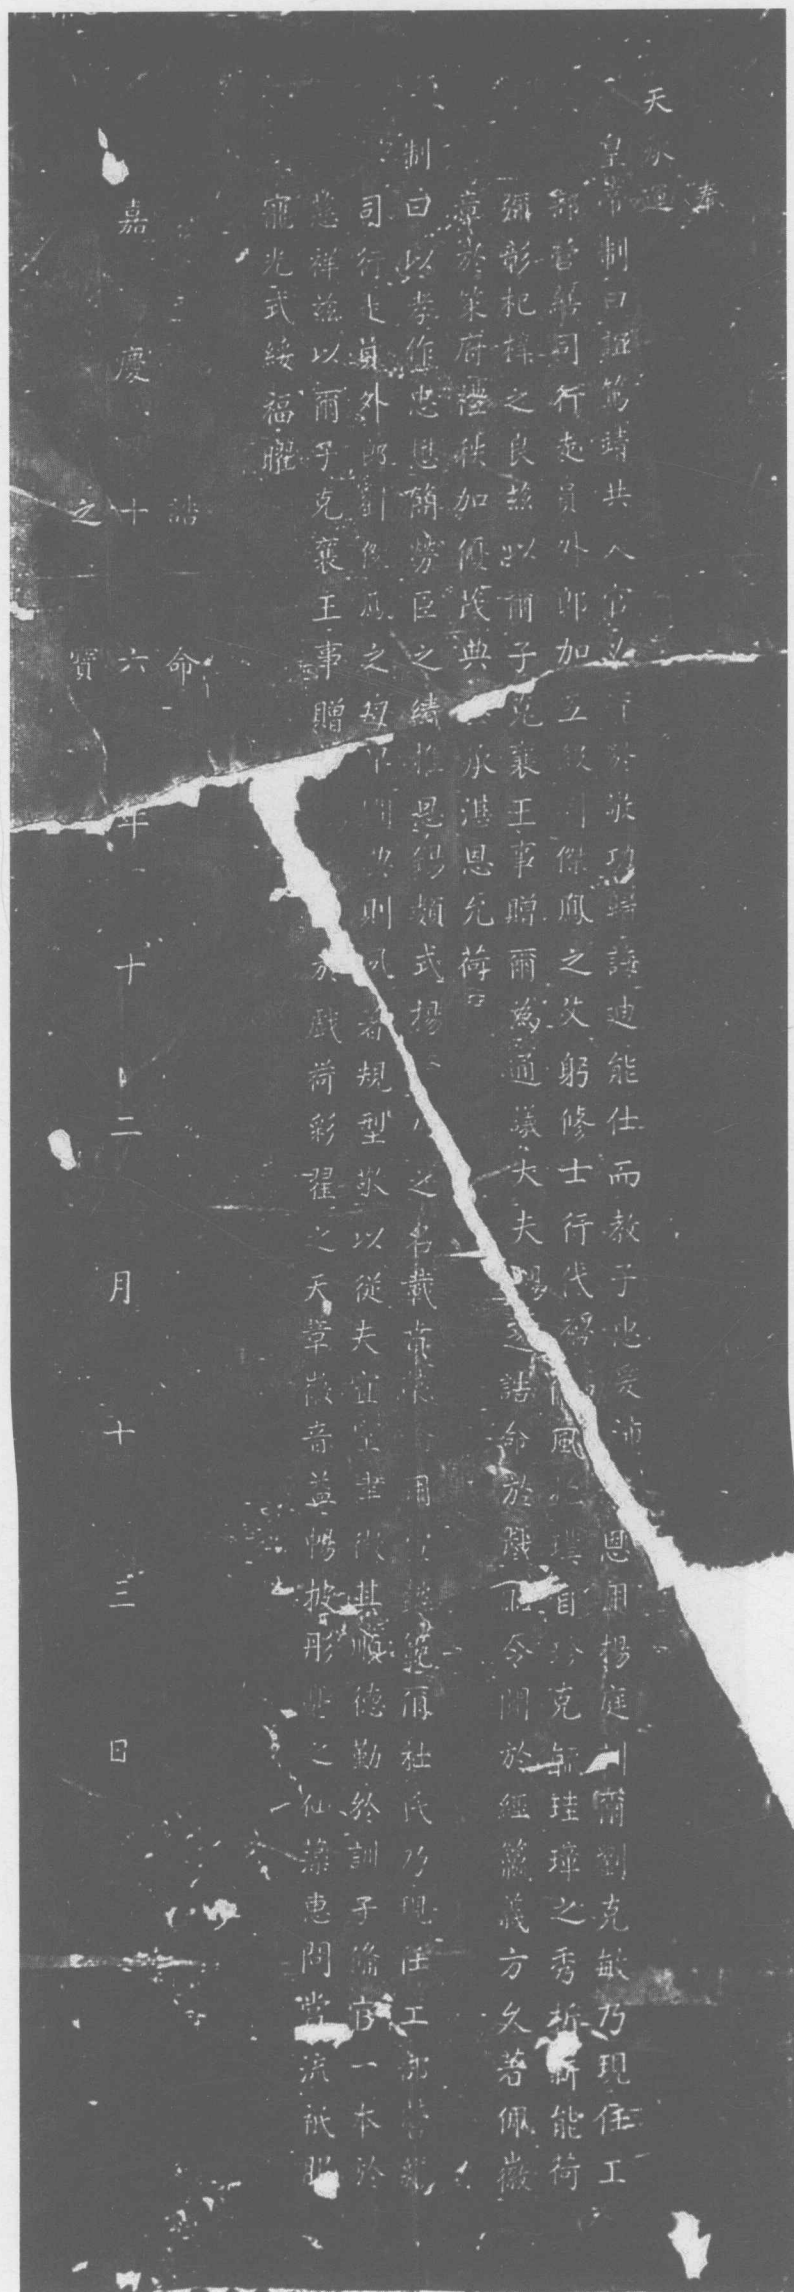 奉
天承運
皇帝制曰誼篤靖共入官必資於敬功歸誨迪能仕而教子忠爰沛恩用揚庭訓爾劉克敏乃現任工
部營繕司行走員外郎加五級劉傑鳳之父躬修士行代啓風自珍克毓珪璋之秀析薪能荷
彌彰杞梓之良茲以爾子克襄王事贈爾爲通議大夫錫之誥命於戲令聞於經籝義方久著佩徽
章於策府禮秩加優茂典承湛恩允荷
制曰以孝作忠懋簡勞臣之績推恩錫類式揚之名載用爾杜氏乃現任工部營繕
司行走員外郎劉傑鳳之母則夙著規型敬以從夫宜室聿徵其順德勤於訓子備官一本於
慈祥茲以爾子克襄王事贈於戲荷彩翟之天章徽音益暢披彤之仙誥惠問常流祇服
寵光式綏福曜
誥命
嘉慶十六年十二月十三日
之寶